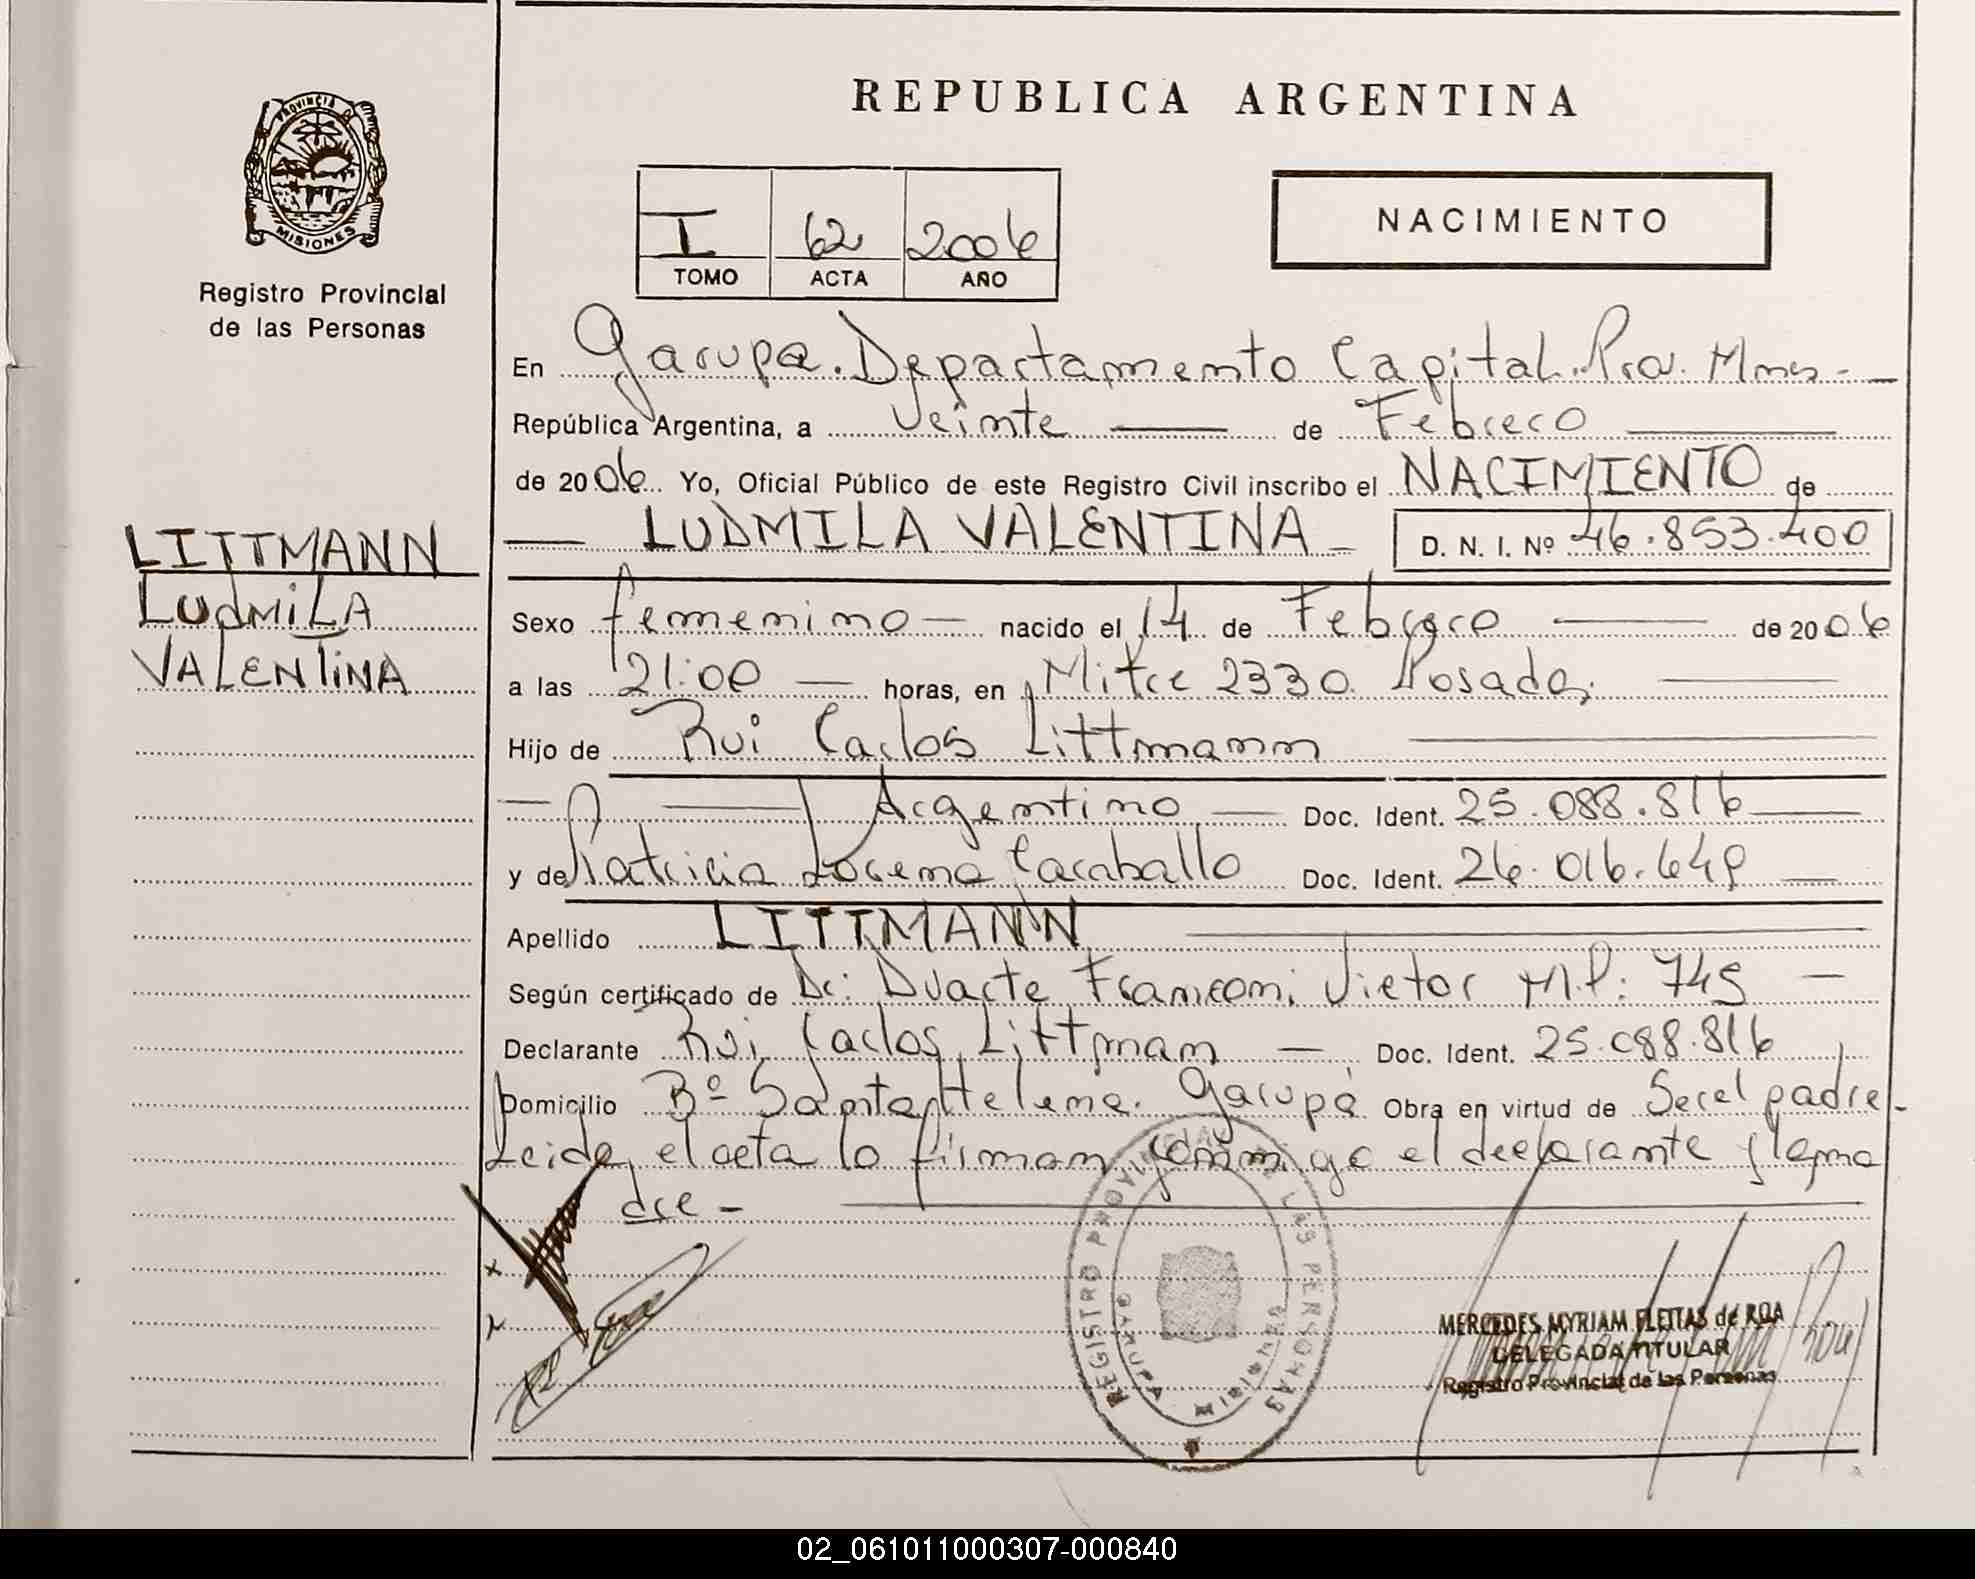 REPUBLICA ARGENTINA
PROVINCIA
MISIONES
Registro Provincial
de las Personas
I 62 2006
TOMO ACTA AÑO
NACIMIENTO
En Garupa. Departamento Capital. Pcia. Mnes-
República Argentina, a veinte de Febrero
de 2006 Yo, Oficial Público de este Registro Civil inscribo el NACIMIENTO de
LUDMILA VALENTINA D. N. I. Nº 46.853.400
LITTMANN
LudmiLA
VALENTiNA
Sexo femenino nacido el 14 de Febrero de 2006
a las 21:00 horas, en Mitre 2330 Posadas
Hijo de Rui Carlos Littmann
Argentino Doc. Ident. 25.088.816
y de Patricia Lorena Caraballo Doc. Ident. 26.016.649
Apellido LITTMANN
Según certificado de Dr: Duarte Franconi Victor M.P: 745
Declarante Rui Carlos Littman Doc. Ident. 25.088.816
Domicilio Bº Santa Helena. Garupá Obra en virtud de Ser el padre-
Leida el acta lo firman conmigo el declarante y la ma
dre-
REGISTRO PROVINCIAL DE LAS PERSONAS
GARUPA Misiones
MERCEDES MYRIAM FLEITAS de ROA
DELEGADA TITULAR
Registro Provincial de las Personas
02_061011000307-000840